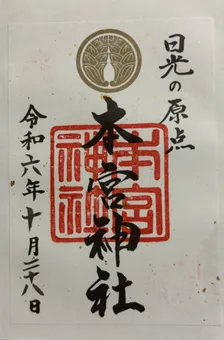 日光の原点
本宮神社
本宮神社
令和六年十月二十八日